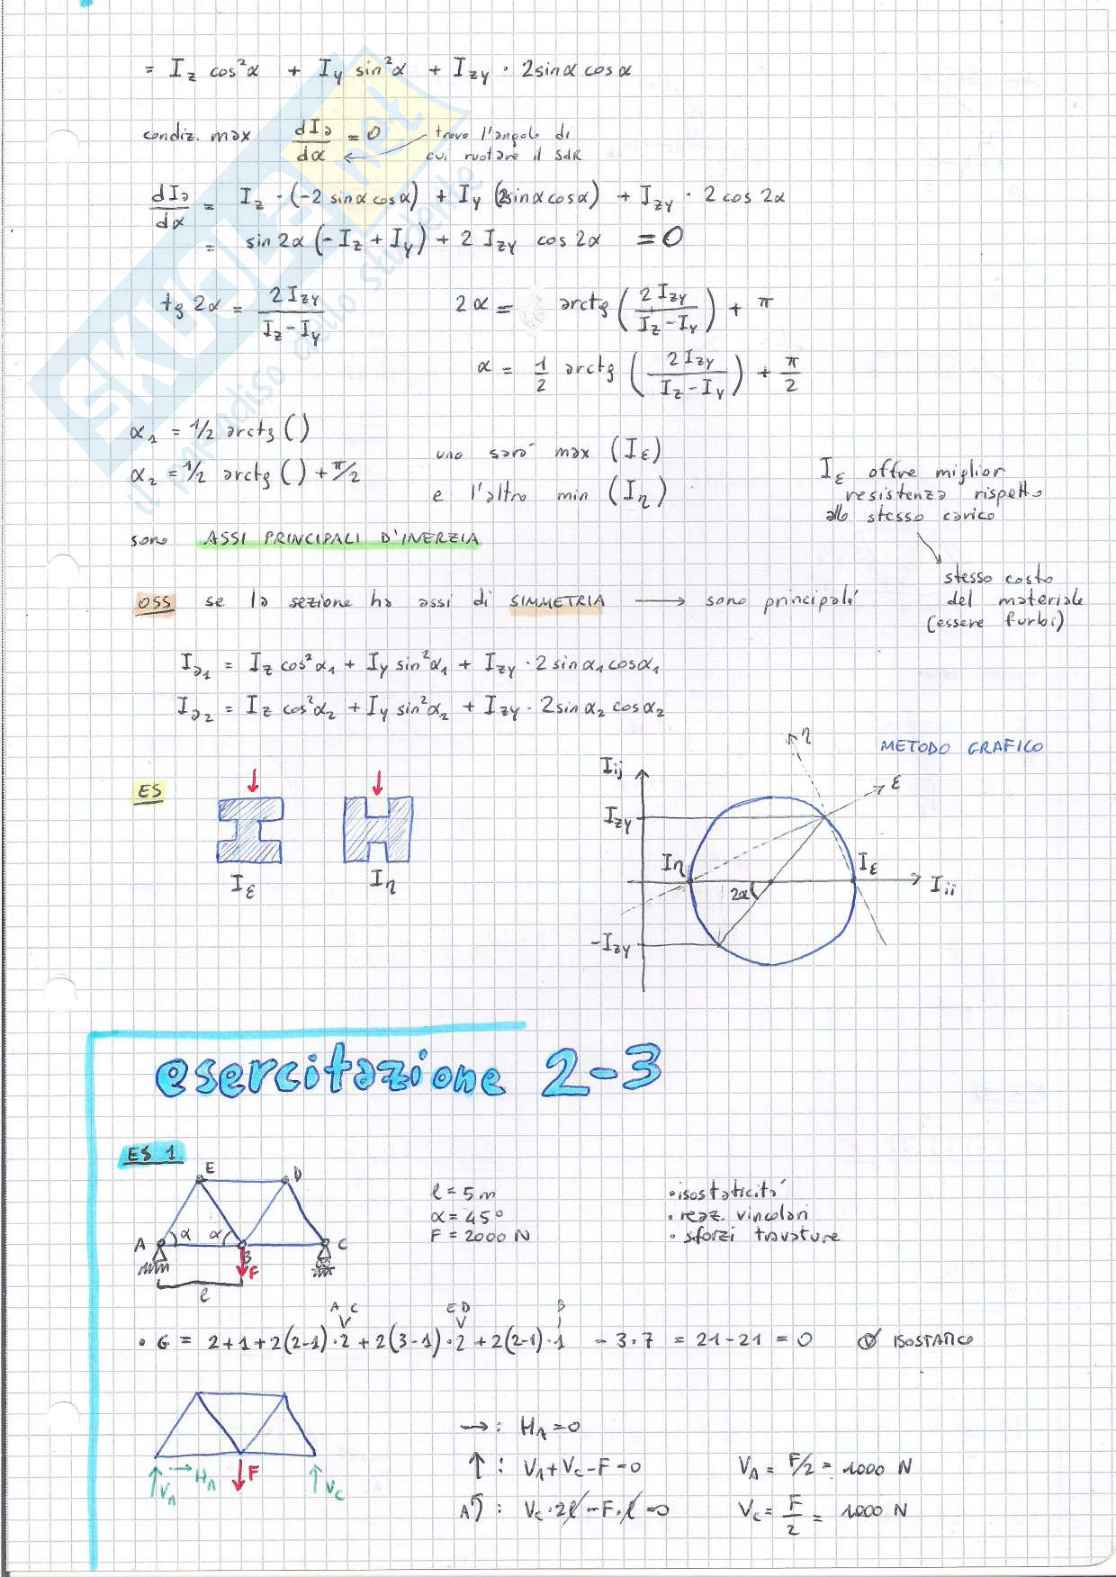 = Iz cos²α + Iy sin²α + Izy · 2sinα cosα
condiz. max dI∂/dα = 0 trovo l'angolo di
cui ruotare il SdR
dI∂/dα = Iz · (-2 sinα cosα) + Iy (2sinα cosα) + Izy · 2 cos 2α
= sin 2α (-Iz + Iy) + 2 Izy cos 2α = 0
tg 2α = 2Izy/(Iz - Iy) 2α = arctg (2Izy/(Iz - Iy)) + π
α = 1/2 arctg (2Izy/(Iz - Iy)) + π/2
α1 = 1/2 arctg ( )
α2 = 1/2 arctg ( ) + π/2
uno sarà max (Iε)
e l'altro min (Iη)
Iε offre miglior
resistenza rispetto
allo stesso carico
sono ASSI PRINCIPALI D'INERZIA
stesso costo
del materiale
(essere furbi)
OSS se la sezione ha assi di SIMMETRIA → sono principali
I∂1 = Iz cos²α1 + Iy sin²α1 + Izy · 2 sinα1 cosα1
I∂2 = Iz cos²α2 + Iy sin²α2 + Izy · 2sinα2 cosα2
METODO GRAFICO
ES
Iε Iη
Iij
η
ε
Izy
Iη
Iε
Iii
2α
-Izy
esercitazione 2-3
ES 1
E D
A α α B C
F
l
l = 5m
α = 45°
F = 2000 N
• isostaticità
• reaz. vincolari
• sforzi travature
A C E D B
• G = 2+1+2(2-1)·2 + 2(3-1)·2 + 2(2-1)·1 - 3·7 = 21-21 = 0 ISOSTATICO
VA HA F VC
→ : HA = 0
↑ : VA + VC - F = 0 VA = F/2 = 1000 N
A : VC · 2l - F · l = 0 VC = F/2 = 1000 N
SKUOLA.net
il paradiso dello studente